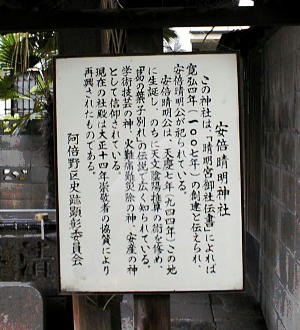 安倍晴明神社
この神社は、「晴明宮御社伝書」によれば
寛弘四年(一〇〇七年)の創建と伝えられ、
安倍晴明公が祀られてゐる。
安倍晴明公は、天慶七年(九四四年)この地
に生誕し、のちに天文陰陽推算の術を修め、
「葛の葉子別れ」の伝説で広く知られている。
学術技芸の神、火難病難災除の神、安産の神
として信仰されている。
現在の社殿は大正十四年崇敬者の協賛により
再興されたものである。
阿倍野区史跡顕彰委員会